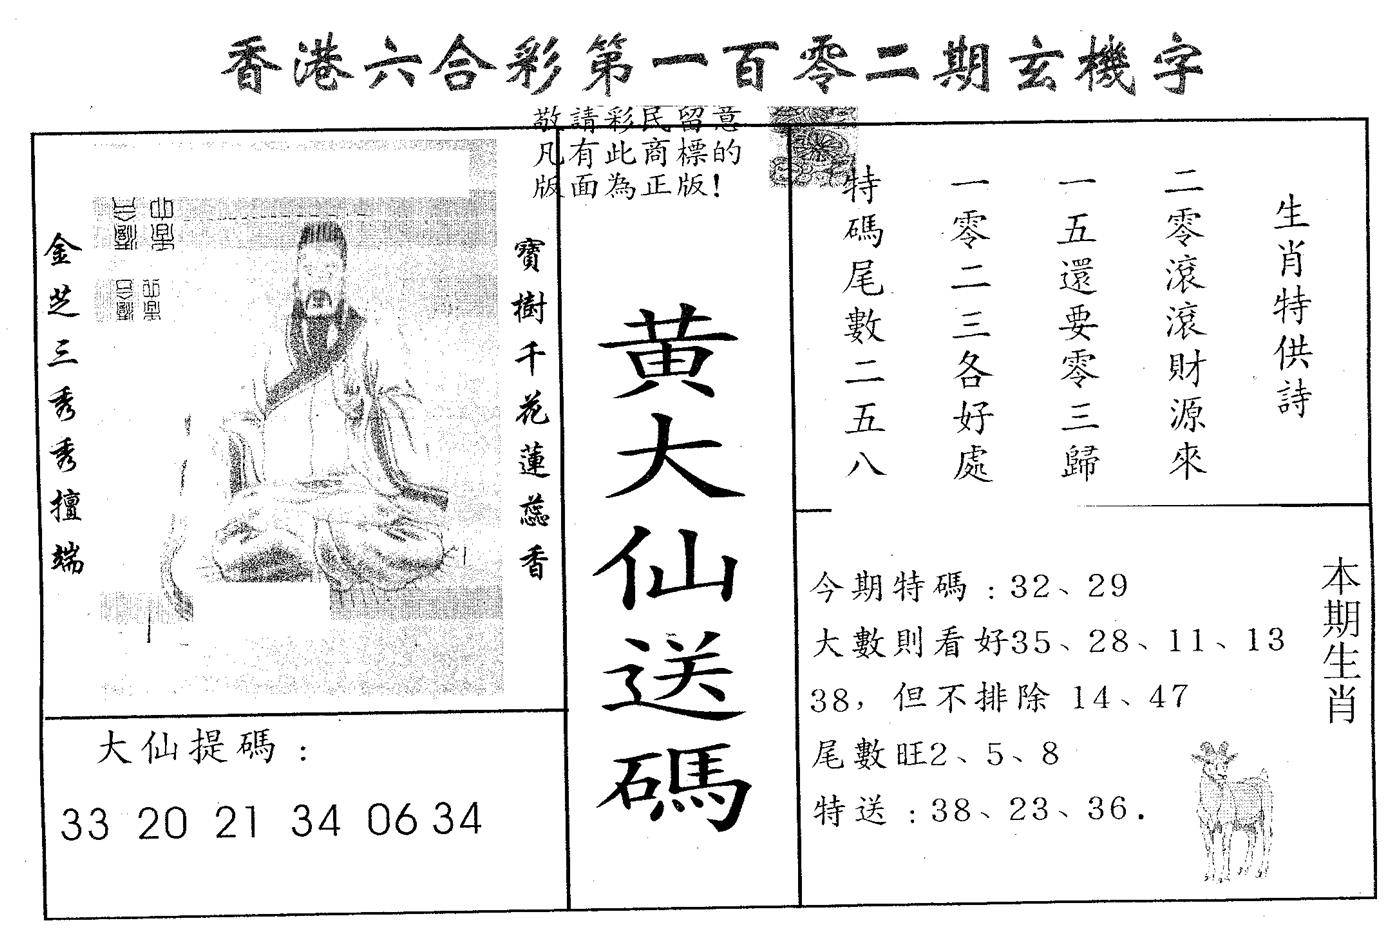 香港六合彩第一百零二期玄機字
敬請彩民留意
凡有此商標的
版面為正版!
生肖特供詩
二零滾滾財源來
一五還要零三歸
一零二三各好處
特碼尾數二五八
寶樹千花蓮蕊香
金芝三秀秀擅端
黃大仙送碼
大仙提碼:
33 20 21 34 06 34
本期生肖
今期特碼:32、29
大數則看好35、28、11、13
38,但不排除 14、47
尾數旺2、5、8
特送:38、23、36.